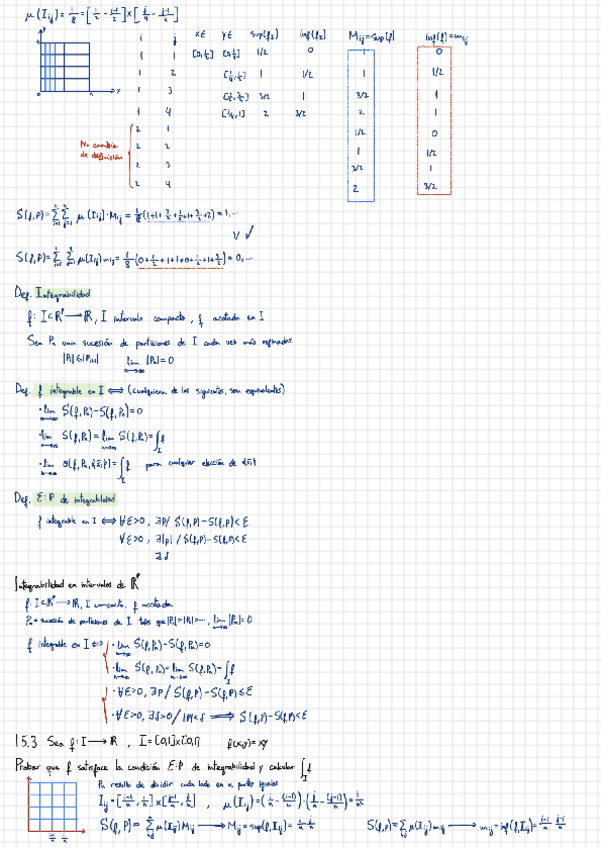 μ(I_ij) = 1/8 = [i/2 - (i-1)/2] x [j/4 - (j-1)/4]
i j x∈ y∈ sup(f_2) inf(f_2) M_ij = sup(f) inf(f) = m_ij
1 1 [0,1/2] [0,1/4] 1/2 0 1 0
1 2 [1/4,1/2] 1 1/2 1 1/2
1 3 [1/2,3/4] 3/2 1 3/2 1
1 4 [3/4,1] 2 3/2 2 1
2 1 1/2 0
No cambia de definición
2 2 1 1/2
2 3 3/2 1
2 4 2 3/2
S(f,P) = ∑ ∑ μ(I_ij)·M_ij = 1/8 (1+1+3/2+2+1/2+1+3/2+2) = 1,...
s(f,P) = ∑ ∑ μ(I_ij) m_ij = 1/8 (0+1/2+1+1+0+1/2+1+3/2) = 0,...
Def. Integrabilidad
f: I⊂R^p → R, I intervalo compacto, f acotada en I
Sea P_n una sucesión de particiones de I cada vez más refinadas
lim n→∞ |P_n| = 0
Def. f integrable en I ⟺ (cualquiera de los siguientes, son equivalentes)
· lim n→∞ S(f,P_n) - s(f,P_n) = 0
· lim n→∞ s(f,P_n) = lim n→∞ S(f,P_n) = ∫_I f
· lim n→∞ σ(f,P_n,{x_i}) = ∫_I f para cualquier elección de {x_i}
Def. E:P de integrabilidad
f integrable en I ⟺ ∀ε>0, ∃P / S(f,P) - s(f,P) < ε
∀ε>0, ∃|P| / S(f,P) - s(f,P) < ε
∃δ
Integrabilidad en intervalos de R^p
f: I⊂R^p → R, I compacto, f acotada
P_n = sucesión de particiones de I tales que |P_1|>|P_2|>..., lim n→∞ |P_n| = 0
f integrable en I ⟺ · lim n→∞ S(f,P_n) - s(f,P_n) = 0
· lim n→∞ S(f,P_n) = lim n→∞ s(f,P_n) = ∫_I f
· ∀ε>0, ∃P / S(f,P) - s(f,P) ≤ ε
· ∀ε>0, ∃δ>0 / |P|<δ ⟹ S(f,P) - s(f,P) < ε
15.3 Sea f: I → R, I = [0,1]x[0,1] f(x,y) = xy
Probar que f satisface la condición E:P de integrabilidad y calcular ∫_I f
P_n result de dividir cada lado en n partes iguales
I_ij = [(i-1)/n, i/n] x [(j-1)/n, j/n], μ(I_ij) = (i/n - (i-1)/n)·(j/n - (j-1)/n) = 1/n²
S(f,P) = ∑ μ(I_ij) M_ij → M_ij = sup(f,I_ij) = i/n · j/n s(f,P) = ∑ μ(I_ij) m_ij → m_ij = inf(f,I_ij) = (i-1)/n · (j-1)/n